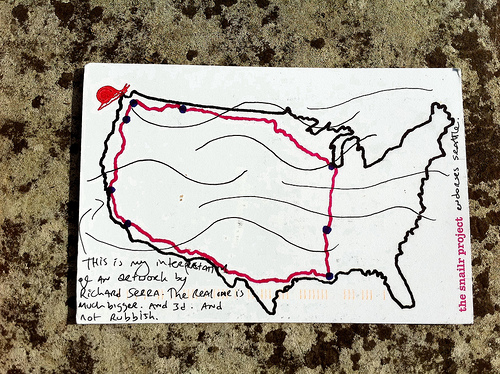 This is my interpretation
of an artwork by
Richard Serra. The real one is
much bigger. And 3d. And
not Rubbish.
the snailr project endorses seattle.